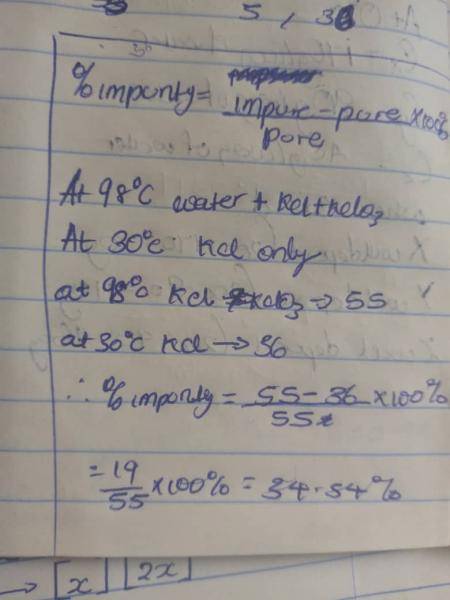 5, 36
% impurity = impure - pure x100%
pure
At 98°C water + Kcl + Kclo3
At 30°c Kcl only
at 98°c Kcl Kclo3 → 55
at 30°c Kcl → 36
∴ % impurity = 55 - 36 x100%
55
= 19 x100% = 34.54%
55
→ [x] [2x]